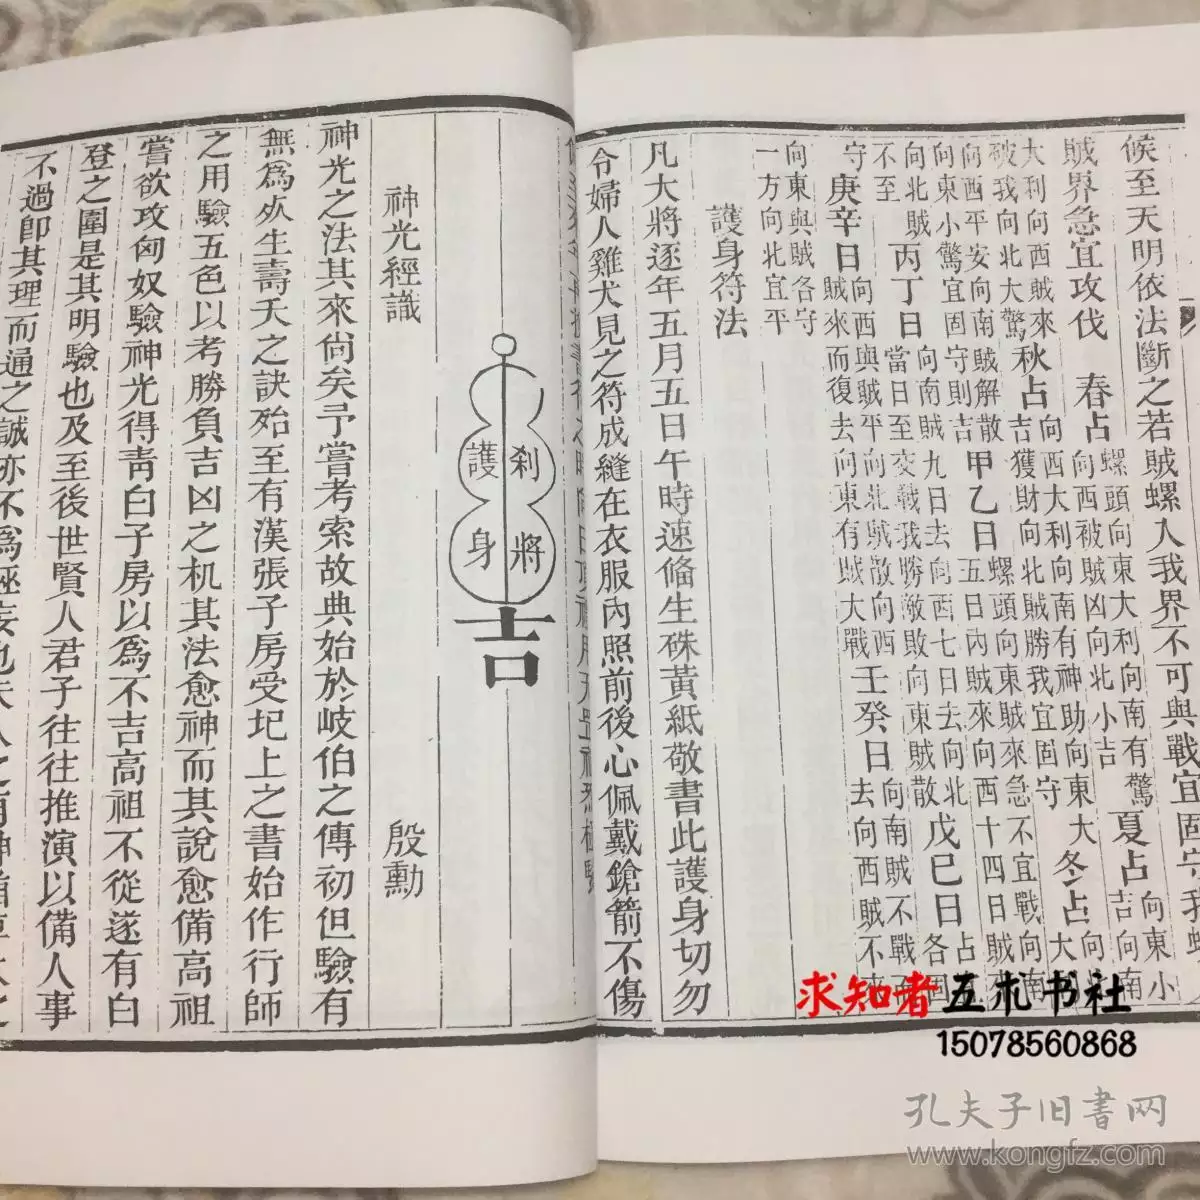 候至天明依法斷之若賊螺入我界不可與戰宜固守我螺
賊界急宜攻伐
春占
螺頭向東大利向南有驚
向西被賊凶向北小吉
夏占
向東小
吉向南
大利向西賊來
破我向北大驚
秋占
向西大利向南有神助向東大
吉獲財向北賊勝我宜固守
冬占
向西平安向南賊解散
向東小驚宜固守則吉
甲乙日
螺頭向東賊來急不宜戰向南
五日內賊來向西十四日賊來
向北賊
不至
丙丁日
向南賊九日去向西七日去向北
當日至交戰我勝敵敗向東賊散
戊己日
守
庚辛日
向西與賊平向北賊散向西
賊來而復去向東有賊大戰
壬癸日
向南賊不戰
去向西賊不
向東與賊各守
一方向北宜平
護身符法
凡大將逐年五月五日午時速備生硃黃紙敬書此護身切勿
令婦人雞犬見之符成縫在衣服內照前後心佩戴鎗箭不傷
護身
刹將
吉
神光經識
殷勳
神光之法其來尙矣予嘗考索故典始於岐伯之傳初但驗有
無爲夶生壽夭之訣殆至有漢張子房受圯上之書始作行師
之用驗五色以考勝負吉凶之机其法愈神而其說愈備高祖
嘗欲攻匈奴驗神光得靑白子房以爲不吉高祖不從遂有白
登之圍是其明驗也及至後世賢人君子往往推演以備人事
不過卽其理而通之誠亦不爲誣妄也夫
求知者五札书社
15078560868
孔夫子旧書网
www.kongfz.com